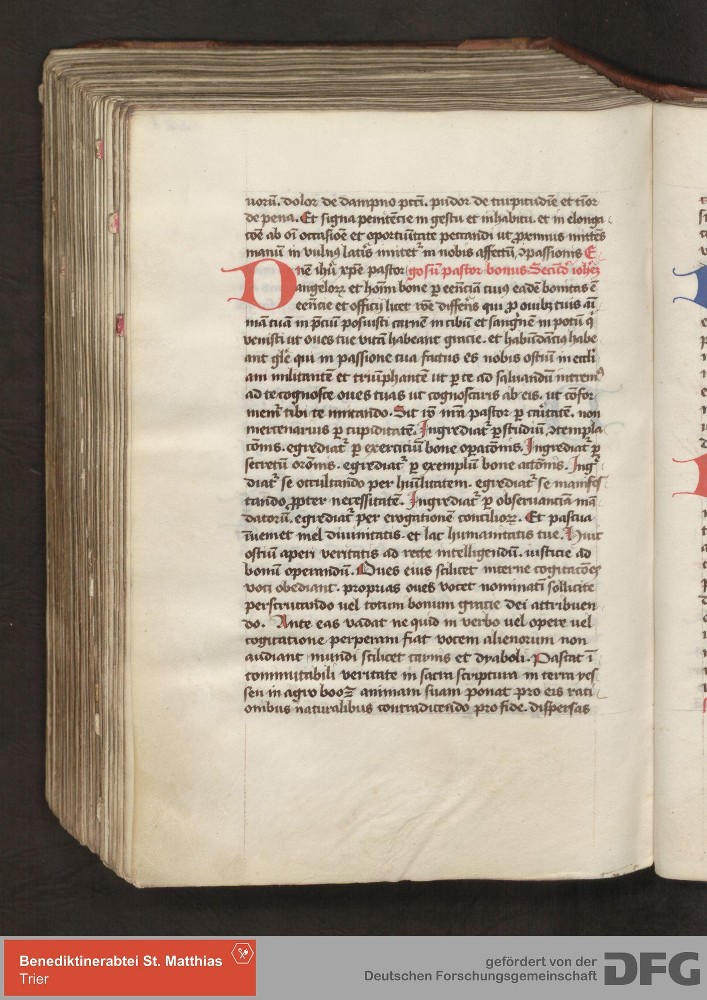 uorū. dolor de dampno pctī. pudor de turpitudīe et tīor
de pena. Et signa penitēcie in gestu et inhabitu. et in elonga
cōe ab oī occasione et oportūitate peccandi ut proximus mittēs
manū in vulnꝰ latīs mitteť in nobis affectū ꝯpassionis E
ne ihū xpē pastor go sū pastor bonus Secūdū iohēz
Dangeloꝝ et hoīm bone ꝑ eēnciā cuiꝰ eadē bonitas ē
eēncie et officij licet rōe differēs qui ꝓ ouibꝫ tuis aī
mā tuā in p̄ciū posuisti carnē in cibū et sangnē in potū q̄
venisti ut oues tue vitā habeant gracie. et habūdāciꝰ habe
ant glē qui in passione tua factus es nobis ostiū in ecclī
am militantē et triūphantē ut ꝑ te ad saluandū intremꝰ
ad te cognosce oues tuas ut cognoscaris ab eis. ut cōfor
memꝰ tibi te imitando. Sit iō mā pastor ꝑ cāitatē. non
mercenarius ꝑ cupiditatē. Ingrediať ꝑ studiū ꝯtempla
cōnis. egrediať ꝑ exerciciū bone opacōnis. Ingrediať ꝑ
secretū orōnis. egrediať ꝑ exemplū bone actōnis. Ingꝛ
diať se occultando per hūilitatem. egrediať se manifes
tando ꝓpter necessitatē. Ingrediať ꝑ obseruanciā mā
datorū. egrediať per erogationē consilioꝝ. Et pascua
īueniet mel diuinitatis et lac humanitatis tue. Huic
ostiū aperi veritatis ad recte intelligendū. iusticie ad
bonū operandū. Oues eius scilicet interne cogitacōes
voci obediant. proprias oues vocet nominatī sollicite
perscrutando uel totum bonum gracie dei attribuen
do. Ante eas vadat ne quid in verbo uel opere uel
cogitatione perperam fiat vocem alienorum non
audiant mundi scilicet carnis et dyaboli. Pascat ī
commutabili veritate in sacra scriptura in terra yes
sen in agro booz animam suam ponat pro eis raci
onibus naturalibus contradicendo pro fide. dispersas
Benediktinerabtei St. Matthias
Trier
gefördert von der
Deutschen Forschungsgemeinschaft DFG